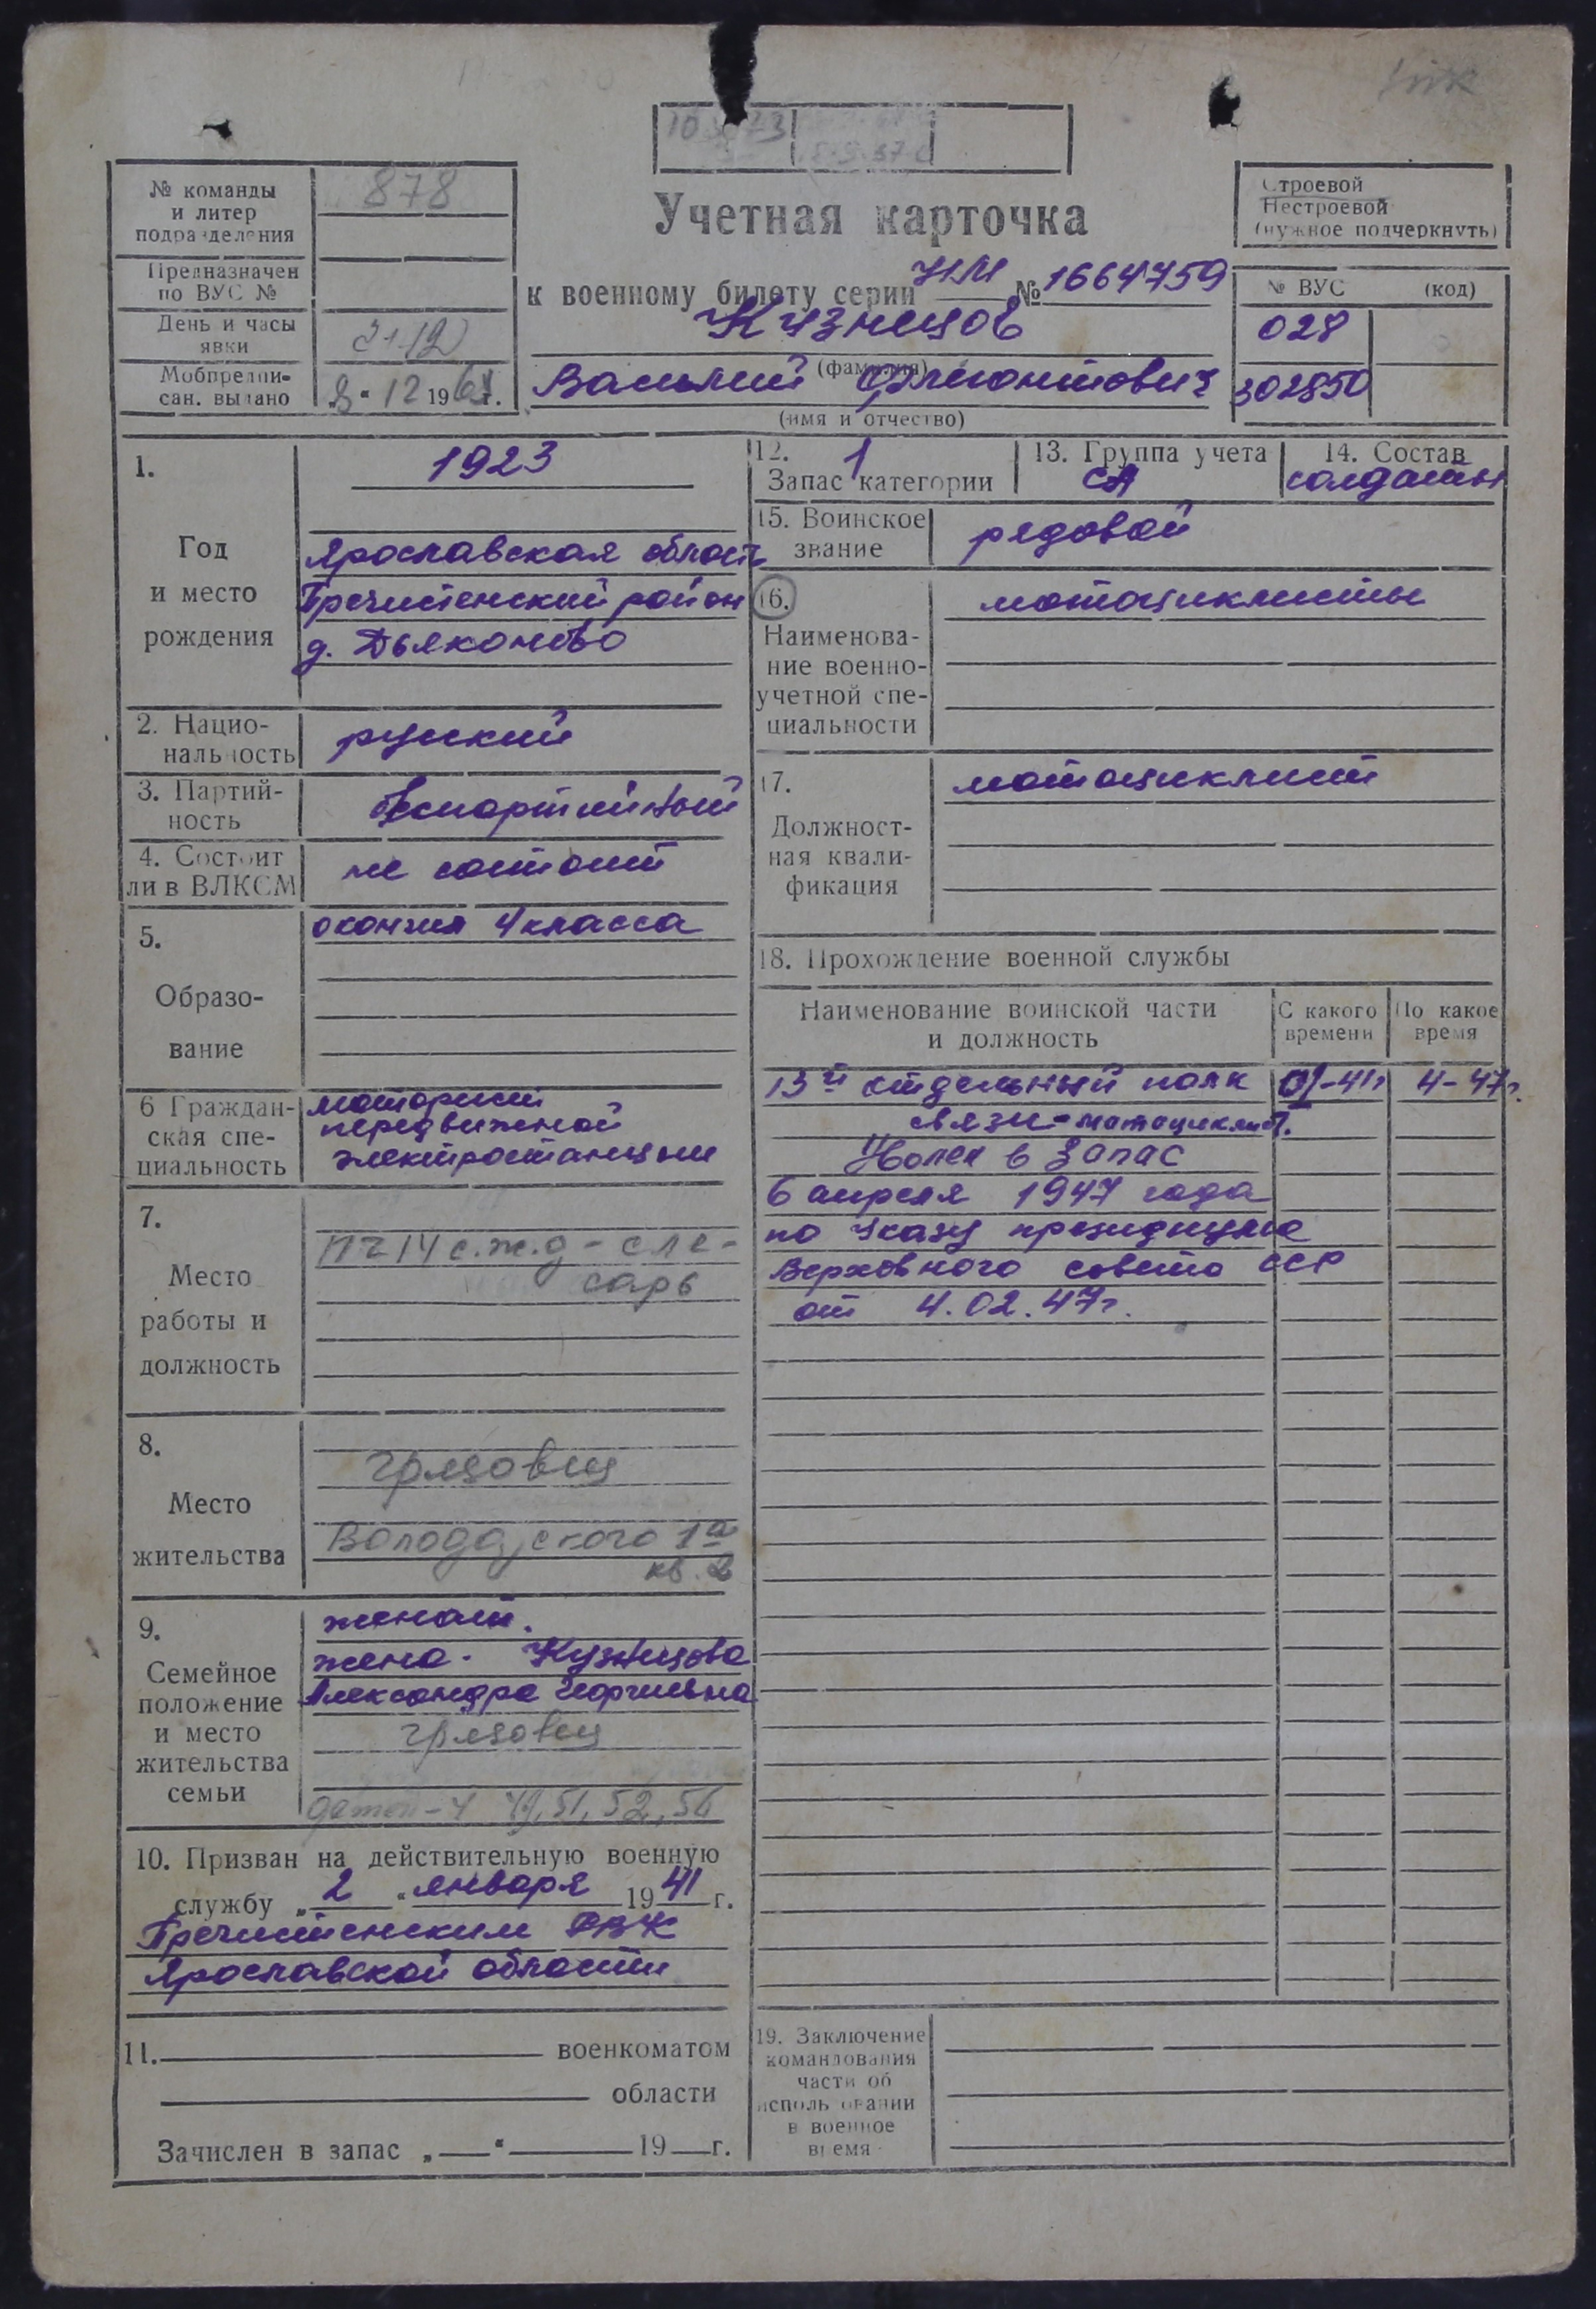 878
№ команды
и литер
подразделения
Предназначен
по ВУС №
День и часы
явки
Мобпредпи-
сан. выдано
12 19 г.
Учетная карточка
к военному билету серии НМ № 1664759
Кузнецов
(фамилия)
Василий
(имя и отчество)
Строевой
Нестроевой
(нужное подчеркнуть)
№ ВУС (код)
028
302850
1.
Год
и место
рождения
1923
Ярославская область
Пречистенский район
д. Дьяконово
2. Нацио-
нальность
русский
3. Партий-
ность
беспартийный
4. Состоит
ли в ВЛКСМ
не состоит
5.
Образо-
вание
окончил 4 класса
6 Граждан-
ская спе-
циальность
моторист
передвижной
электростанции
7.
Место
работы и
должность
ПЧ 14 с.ж.д - сле-
сарь
8.
Место
жительства
Грязовец
Володарского 1а
кв. 2
9.
Семейное
положение
и место
жительства
семьи
женат.
жена - Кузнецова
Александра Георгиевна
Грязовец
детей - 4 49, 51, 52, 56
10. Призван на действительную военную
службу „ 2 “ января 19 41 г.
Пречистенским РВК
Ярославской области
11. военкоматом
области
Зачислен в запас „ “ 19 г.
12. 1
Запас категории
13. Группа учета
СА
14. Состав
солдаты
15. Воинское
звание
рядовой
16.
Наименова-
ние военно-
учетной спе-
циальности
мотоциклисты
17.
Должност-
ная квали-
фикация
мотоциклист
18. Прохождение военной службы
Наименование воинской части
и должность
С какого
времени
По какое
время
13й отдельный полк 01-41г 4-47г.
связи - мотоциклист.
Уволен в запас
6 апреля 1947 года
по Указу президиума
Верховного совета ССР
от 4.02.47г.
19. Заключение
командования
части об
использовании
в военное
время